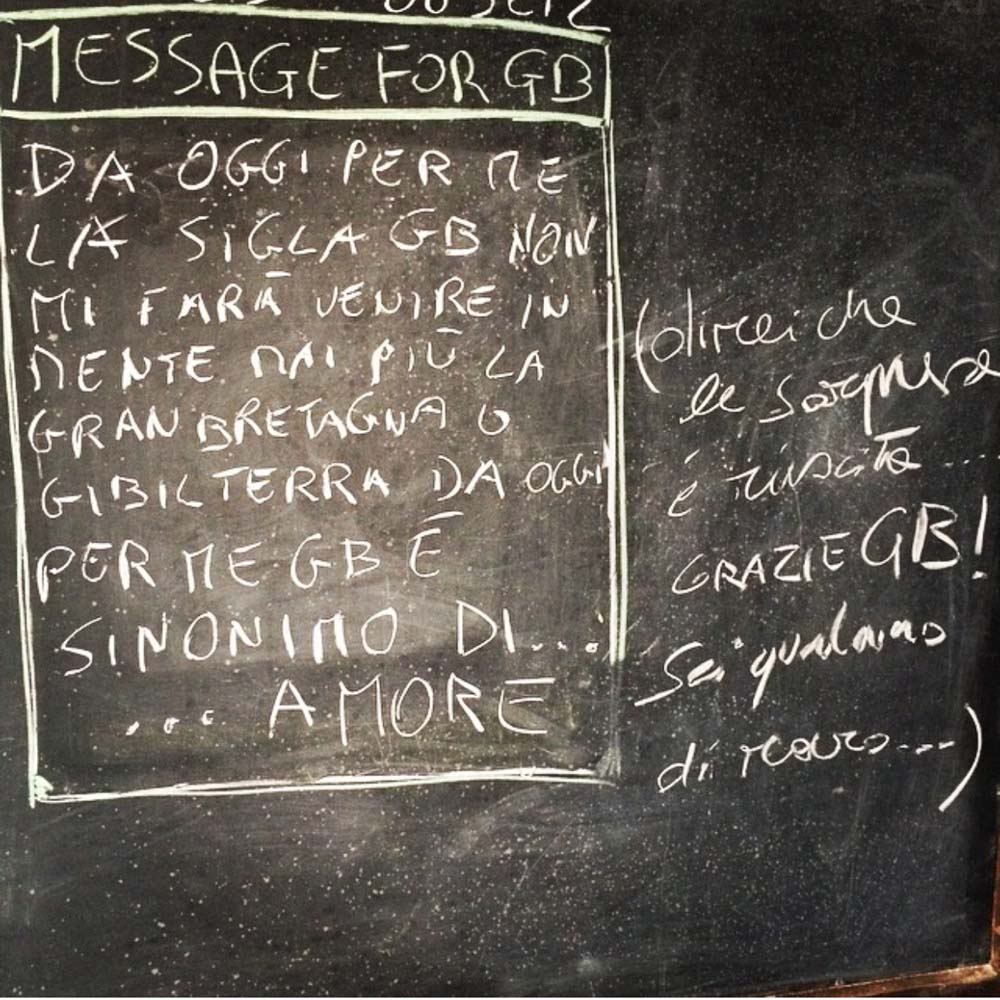 MESSAGE FOR GB
DA OGGI PER ME
LA SIGLA GB NON
MI FARÀ VENIRE IN
MENTE MAI PIÙ LA
GRAN BRETAGNA O
GIBILTERRA DA OGGI
PER ME GB È
SINONIMO DI...
... AMORE
(direi che
la sorpresa
è riuscita....
GRAZIE GB!
Sei qualcuno
di raro....)